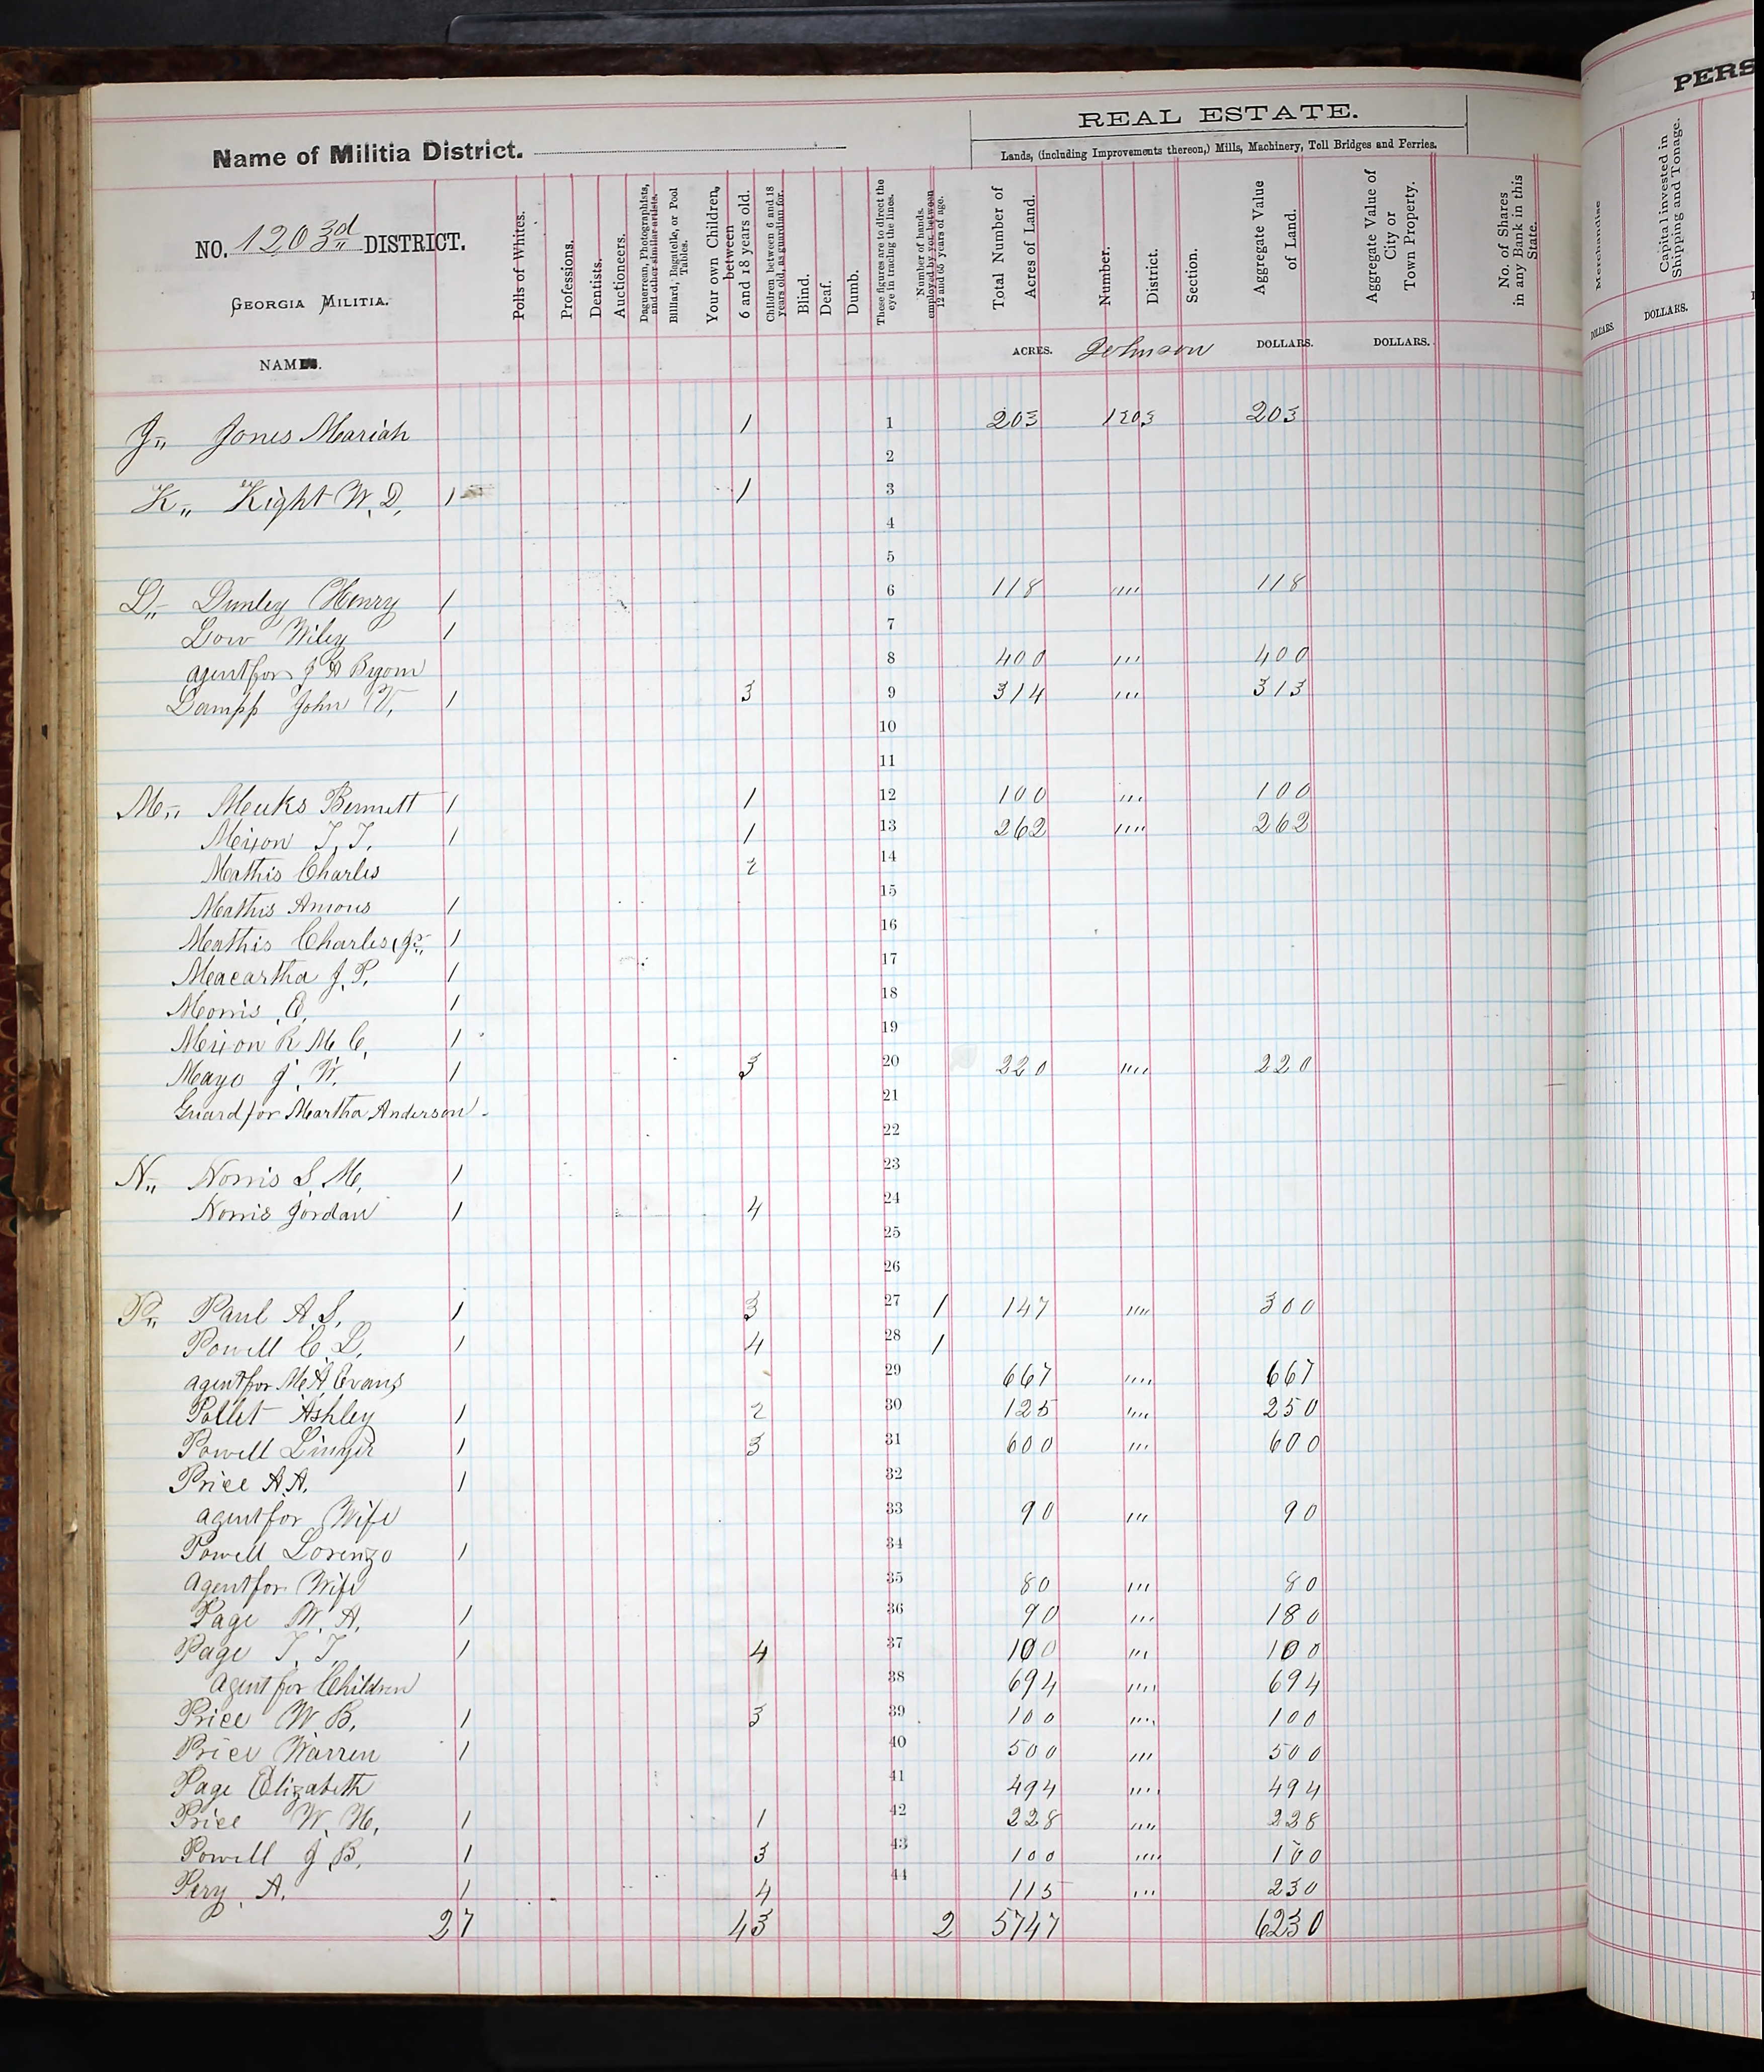 REAL ESTATE.
PERS
Name of Militia District.
Lands, (including Improvements thereon,) Mills, Machinery, Toll Bridges and Ferries.
NO. 1203d DISTRICT.
GEORGIA MILITIA.
Polls of Whites.
Professions.
Dentists.
Auctioneers.
Daguerrean, Photographists, and other similar artists.
Billiard, Bagatelle, or Pool Tables.
Your own Children, between 6 and 18 years old.
Children between 6 and 18 years old, as guardian for.
Blind.
Deaf.
Dumb.
These figures are to direct the eye in tracing the lines.
Number of hands. employed by you between 12 and 65 years of age.
Total Number of Acres of Land.
Number.
District.
Section.
Aggregate Value of Land.
Aggregate Value of City or Town Property.
No. of Shares in any Bank in this State.
Merchandise
Capital invested in Shipping and Tonage.
NAMES. ACRES. Johnson DOLLARS. DOLLARS. DOLLARS. DOLLARS.
J,, Jones Mariah 1 1 203 1203 203
2
K,, Kight W. D. 1 1 3
4
5
L,, Linley Henry 1 6 118 ,,,, 118
Low Wiley 1 7
agent for J D Bryom 8 400 ,,, 400
Lampp John V. 1 3 9 314 ,,, 313
10
11
M,, Meeks Bennett 1 1 12 100 ,,, 100
Mixon T. T. 1 1 13 262 ,,,, 262
Mathis Charles 2 14
Mathis Amous 1 15
Mathis Charles, Jr. 1 16
Macartha J. P. 1 17
Morris E. 1 18
Mixon R M C. 1 19
Mayo J. W. 1 3 20 220 ,,,, 220
Guard for Martha Anderson 21
22
N,, Norris S. M. 1 23
Norris Jordan 1 4 24
25
26
P,, Paul A. S. 1 3 27 1 147 ,,,, 300
Powell C. L. 1 4 28 1
agent for M. A. Evans 29 667 ,,,, 667
Pollet Ashley 1 2 30 125 ,,,, 250
Powell 1 3 31 600 ,,, 600
Price A. A. 1 32
agent for Wife 33 90 ,,, 90
Powell Lorenzo 1 34
agent for Wife 35 80 ,,, 80
Page W. A. 1 36 90 ,,, 180
Page T. T. 1 4 37 100 ,,, 100
agent for Children 38 694 ,,,, 694
Price W B. 1 3 39 100 ,,,, 100
Price Warren 1 40 500 ,,, 500
Page Elizabeth 41 494 ,,,, 494
Price W. H. 1 1 42 228 ,,,, 228
Powell J. B. 1 3 43 100 ,,,, 100
Pery A. 1 4 44 115 ,,, 230
27 43 2 5747 6230